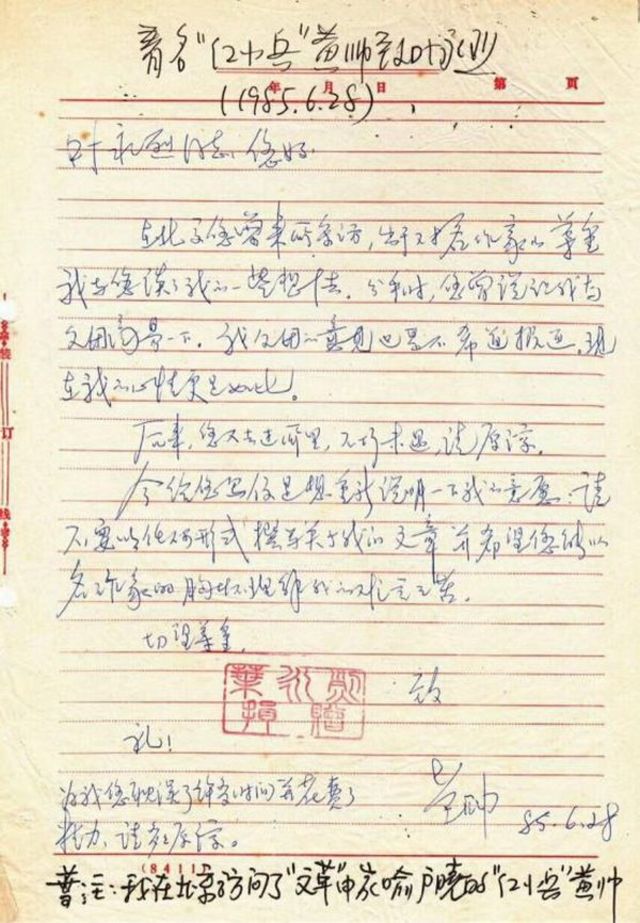 著名“红小兵”黄帅致叶永烈
年 月 日 第 页
(1985.6.28)
叶永烈同志：您好.
在北京您曾来所采访，出于对名作家的尊重
我与您谈了我的一些想法。分手时，您曾说让我与
父母商量一下。我父母的意见也是不希望报道，现
在我的心情更是如此。
后来，您又去过所里，不巧未遇，请原谅。
今给您写信是想重新说明一下我的意愿：请
不要以任何形式撰写关于我的文章并希望您能以
名作家的胸怀理解我的难言之苦。
切望尊重。
叶永烈赠
致
礼！
为我您耽误了许多时间并花费了
精力，请多原谅。
黄帅
85.6.28
装
订
线
(8411)
普注：我在北京访问了“文革”中家喻户晓的“红小兵”黄帅